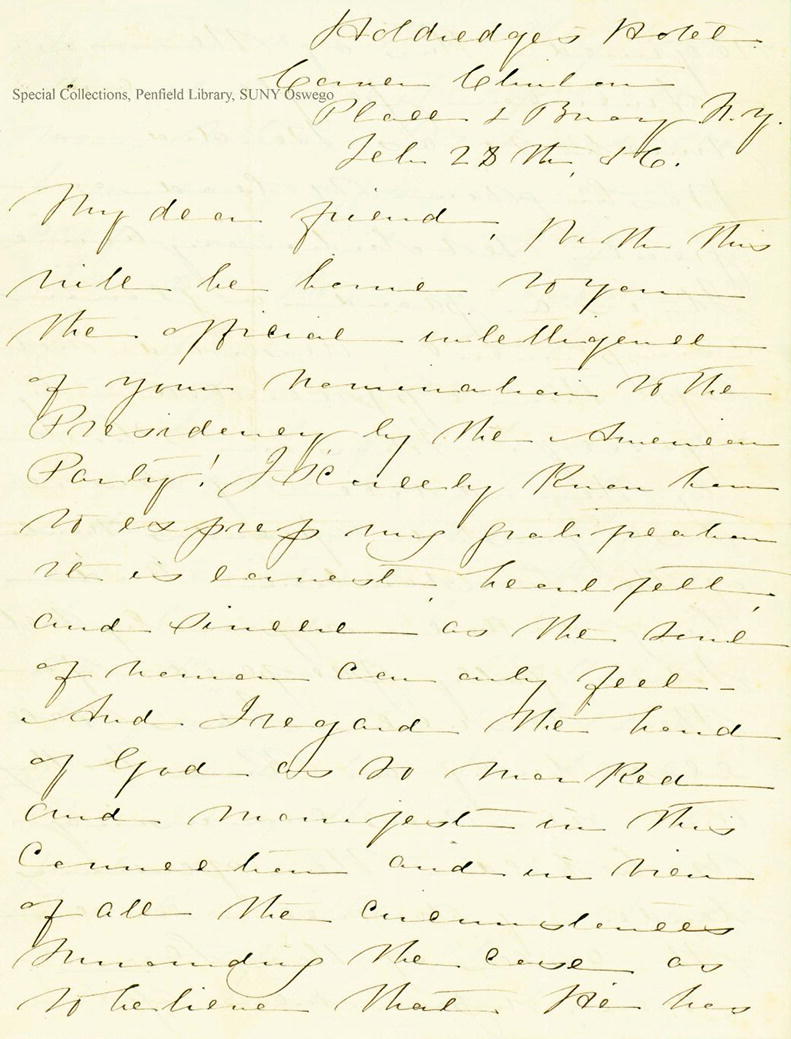 Holdredge's Hotel
Corner Clinton
Special Collections, Penfield Library, SUNY Oswego
Place & Bway N.Y.
Feb 28th, 56.
My dear friend, With this
will be borne to you
the official intelligence
of your nomination to the
Presidency by the American
Party! I Scarcely Know how
to express my gratification
it is earnest, heart felt,
and sincere as the soul
of woman can only feel -
And I regard the hand
of God as so marked
and manifest in this
Connection and in view
of all the circumstances
surrounding the case as
to believe that He has